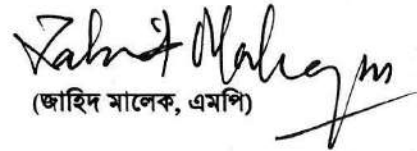 Zahid Maleque
(জাহিদ মালেক, এমপি)